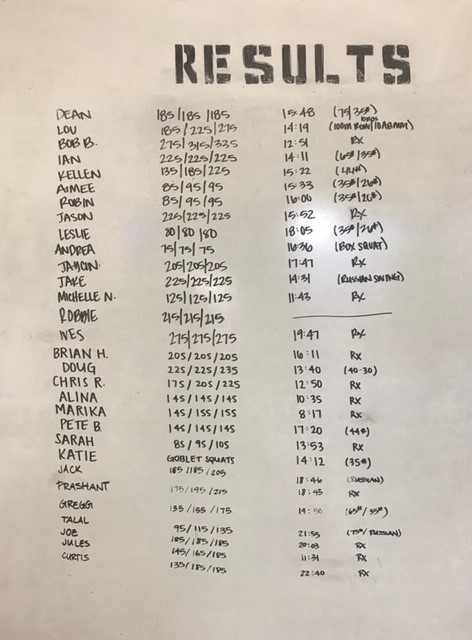 RESULTS
DEAN 185/185/185 15:48 (75/35#)
LOU 185/225/275 14:19 (100m ROW/10 ABMAT)
BOB B. 275/315/335 12:51 RX
IAN 225/225/225 14:11 (65#/35#)
KELLEN 135/185/225 15:22 (44#)
AIMEE 85/95/95 15:33 (35#/26#)
ROBIN 85/95/95 16:00 (35#/26#)
JASON 225/225/225 15:52 RX
LESLIE 80/80/80 18:05 (35#/26#)
ANDREA 75/75/75 16:36 (BOX SQUAT)
205/205/205 17:47 RX
JAKE 225/225/225 14:31 (RUSSIAN SWING)
MICHELLE N. 125/125/125 11:43 RX
ROBBIE 215/215/215
WES 275/275/275 19:47 RX
BRIAN H. 205/205/205 16:11 RX
DOUG 225/225/235 13:40 (40-30)
CHRIS R. 175/205/225 12:50 RX
ALINA 145/145/145 10:35 RX
MARIKA 145/155/155 8:17 RX
PETE B. 145/145/145 17:20 (44#)
SARAH 85/95/105 13:53 RX
KATIE GOBLET SQUATS 14:12 (35#)
JACK 185/185/205 18:46 (RUSSIAN)
PRASHANT 175/195/215 18:45 RX
GREGG 135/155/175 (65#/35#)
TALAL 95/115/135 21:55 (75#/RUSSIAN)
JOE 185/185/185 20:03 RX
JULES 145/165/185 11:31 RX
CURTIS 135/185/185 22:40 RX